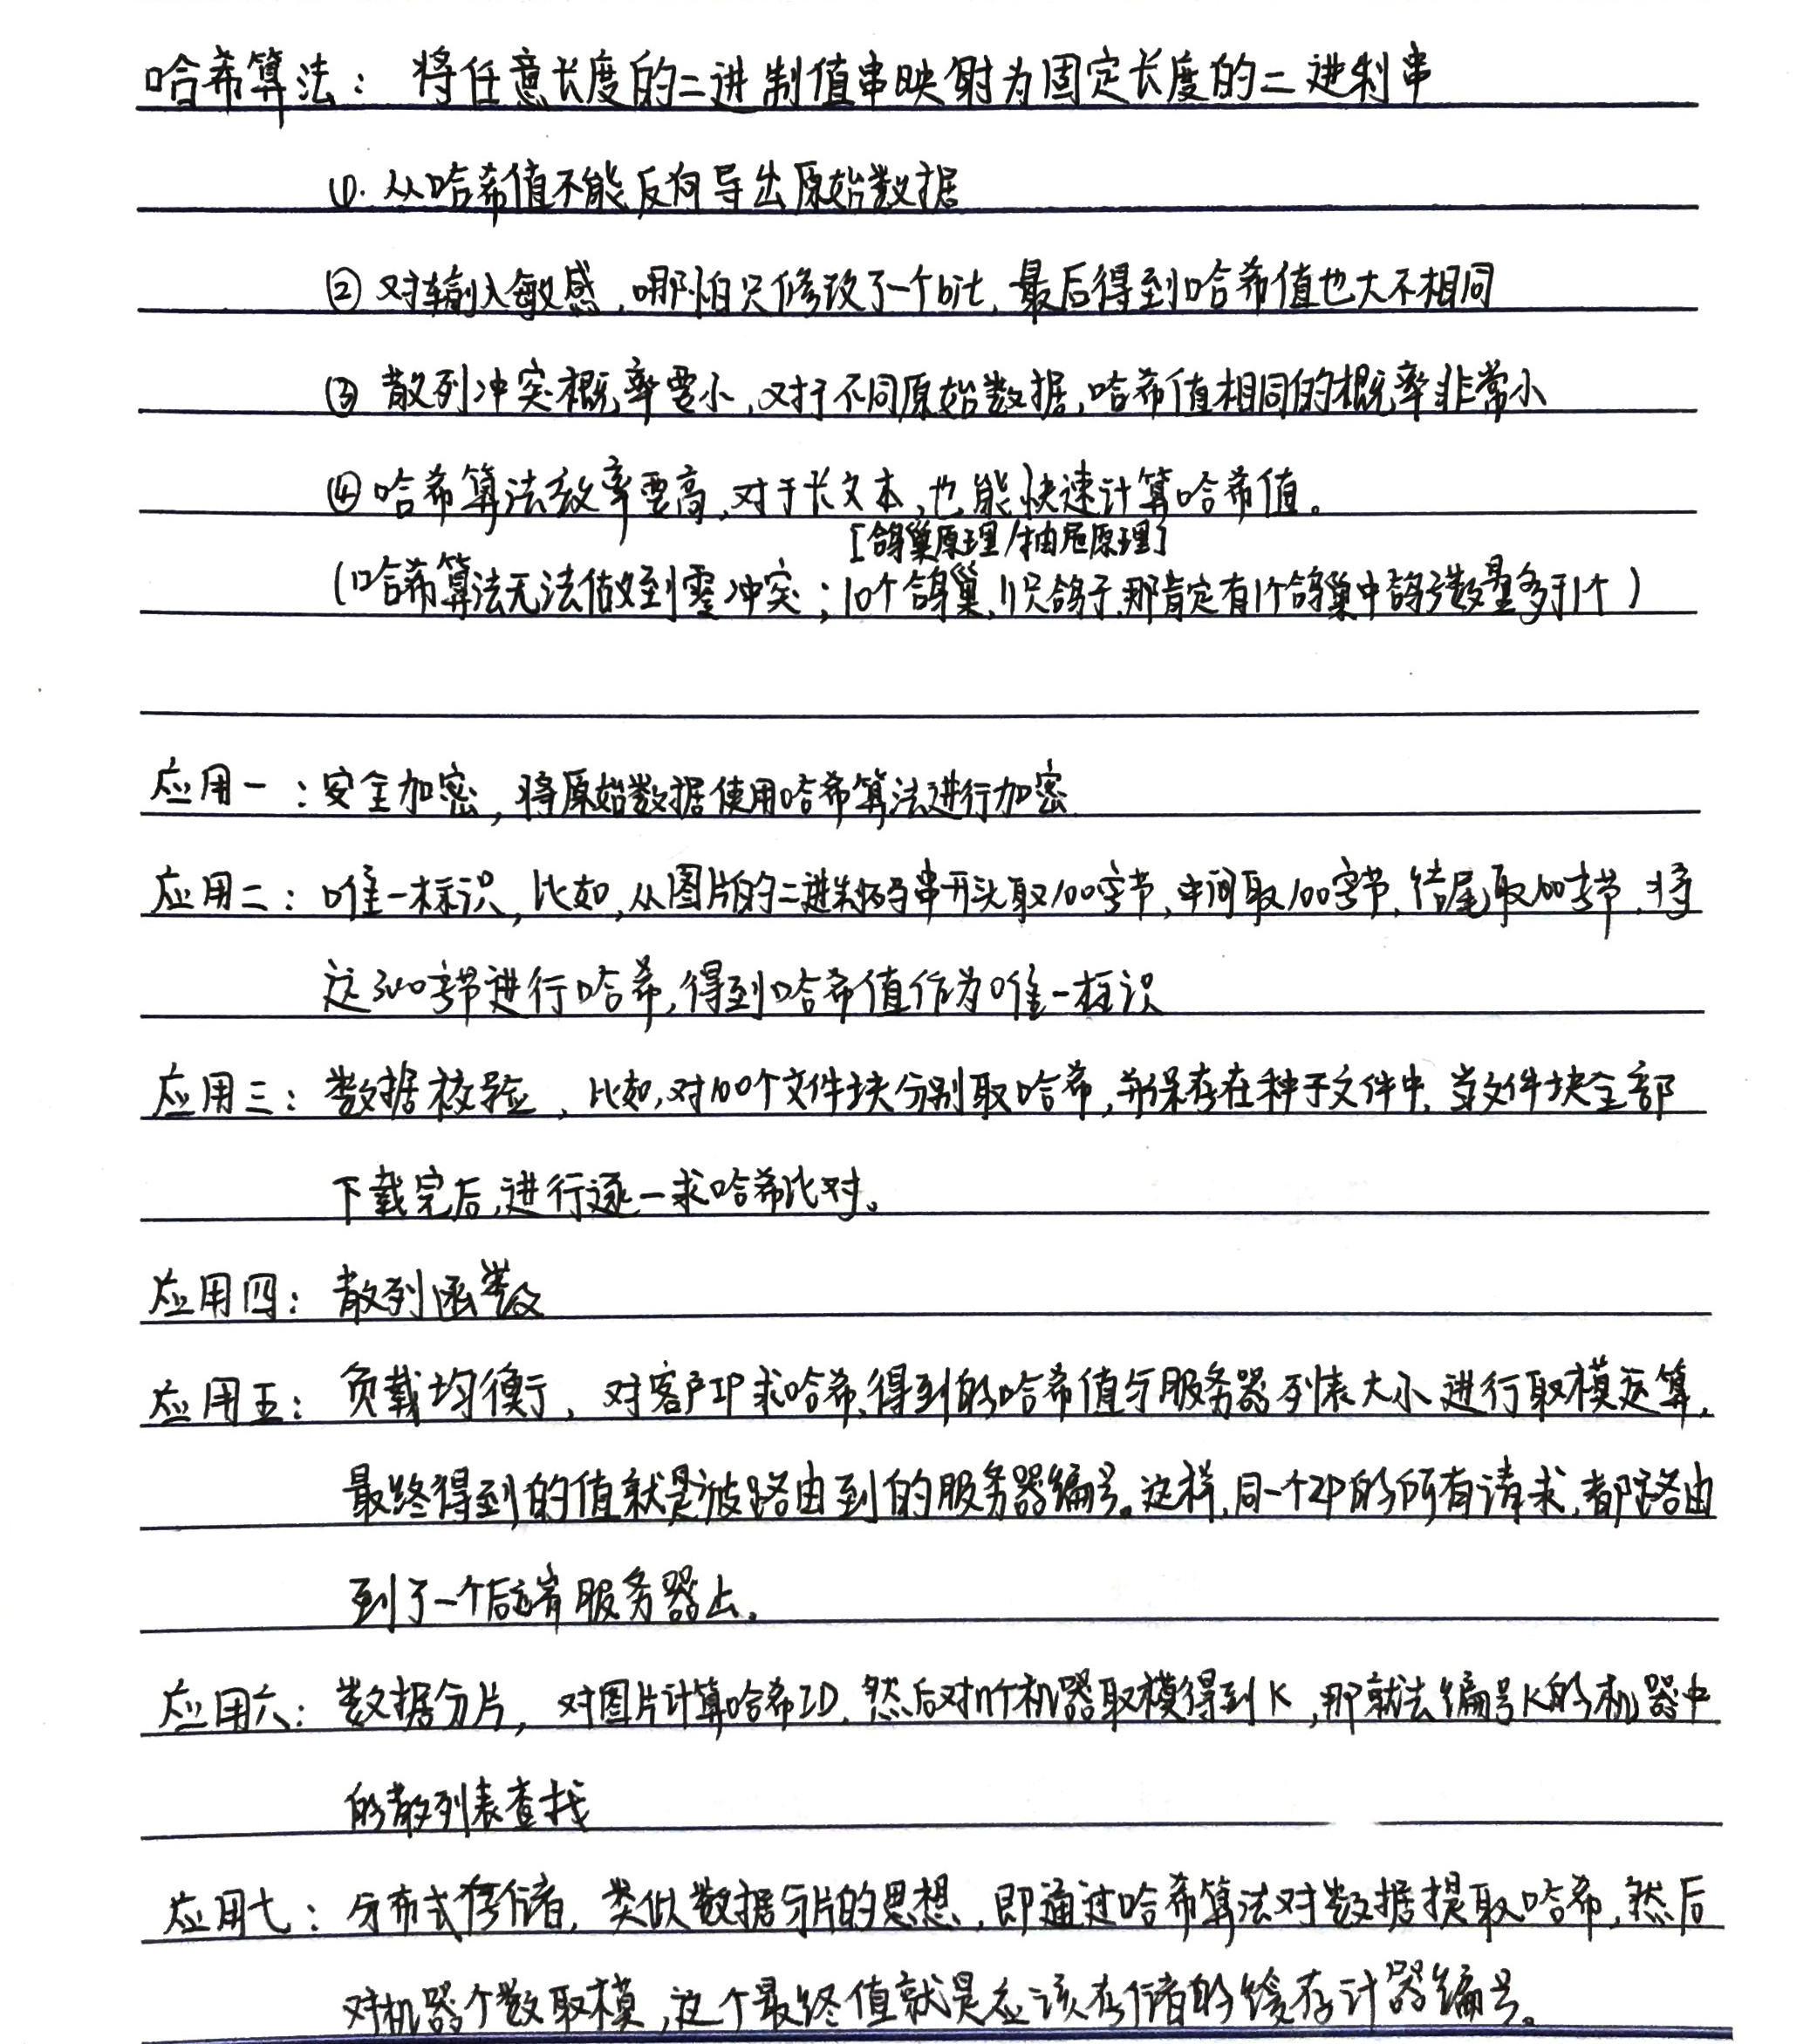 哈希算法：将任意长度的二进制值串映射为固定长度的二进制串
①.从哈希值不能反向导出原始数据
②对输入敏感，哪怕只修改了一个bit，最后得到哈希值也大不相同
③散列冲突概率要小，对于不同原始数据，哈希值相同的概率非常小
④哈希算法效率要高，对于长文本，也能快速计算哈希值。
[鸽巢原理/抽屉原理]
（哈希算法无法做到零冲突；10个鸽巢，11只鸽子，那肯定有1个鸽巢中鸽子数量多于1个）
应用一：安全加密，将原始数据使用哈希算法进行加密
应用二：唯一标识，比如，从图片的二进制码串开头取100字节，中间取100字节，结尾取100字节，将
这300字节进行哈希，得到哈希值作为唯一标识
应用三：数据校验，比如，对100个文件块分别取哈希，并保存在种子文件中，当文件块全部
下载完后，进行逐一求哈希比对。
应用四：散列函数
应用五：负载均衡，对客户IP求哈希，得到的哈希值与服务器列表大小进行取模运算，
最终得到的值就是被路由到的服务器编号。这样，同一个IP的所有请求，都路由
到了一个后端服务器上。
应用六：数据分片，对图片计算哈希ID，然后对n个机器取模得到K，那就去编号K的机器中
的散列表查找
应用七：分布式存储，类似数据分片的思想，即通过哈希算法对数据提取哈希，然后
对机器个数取模，这个最终值就是应该存储的缓存计器编号。